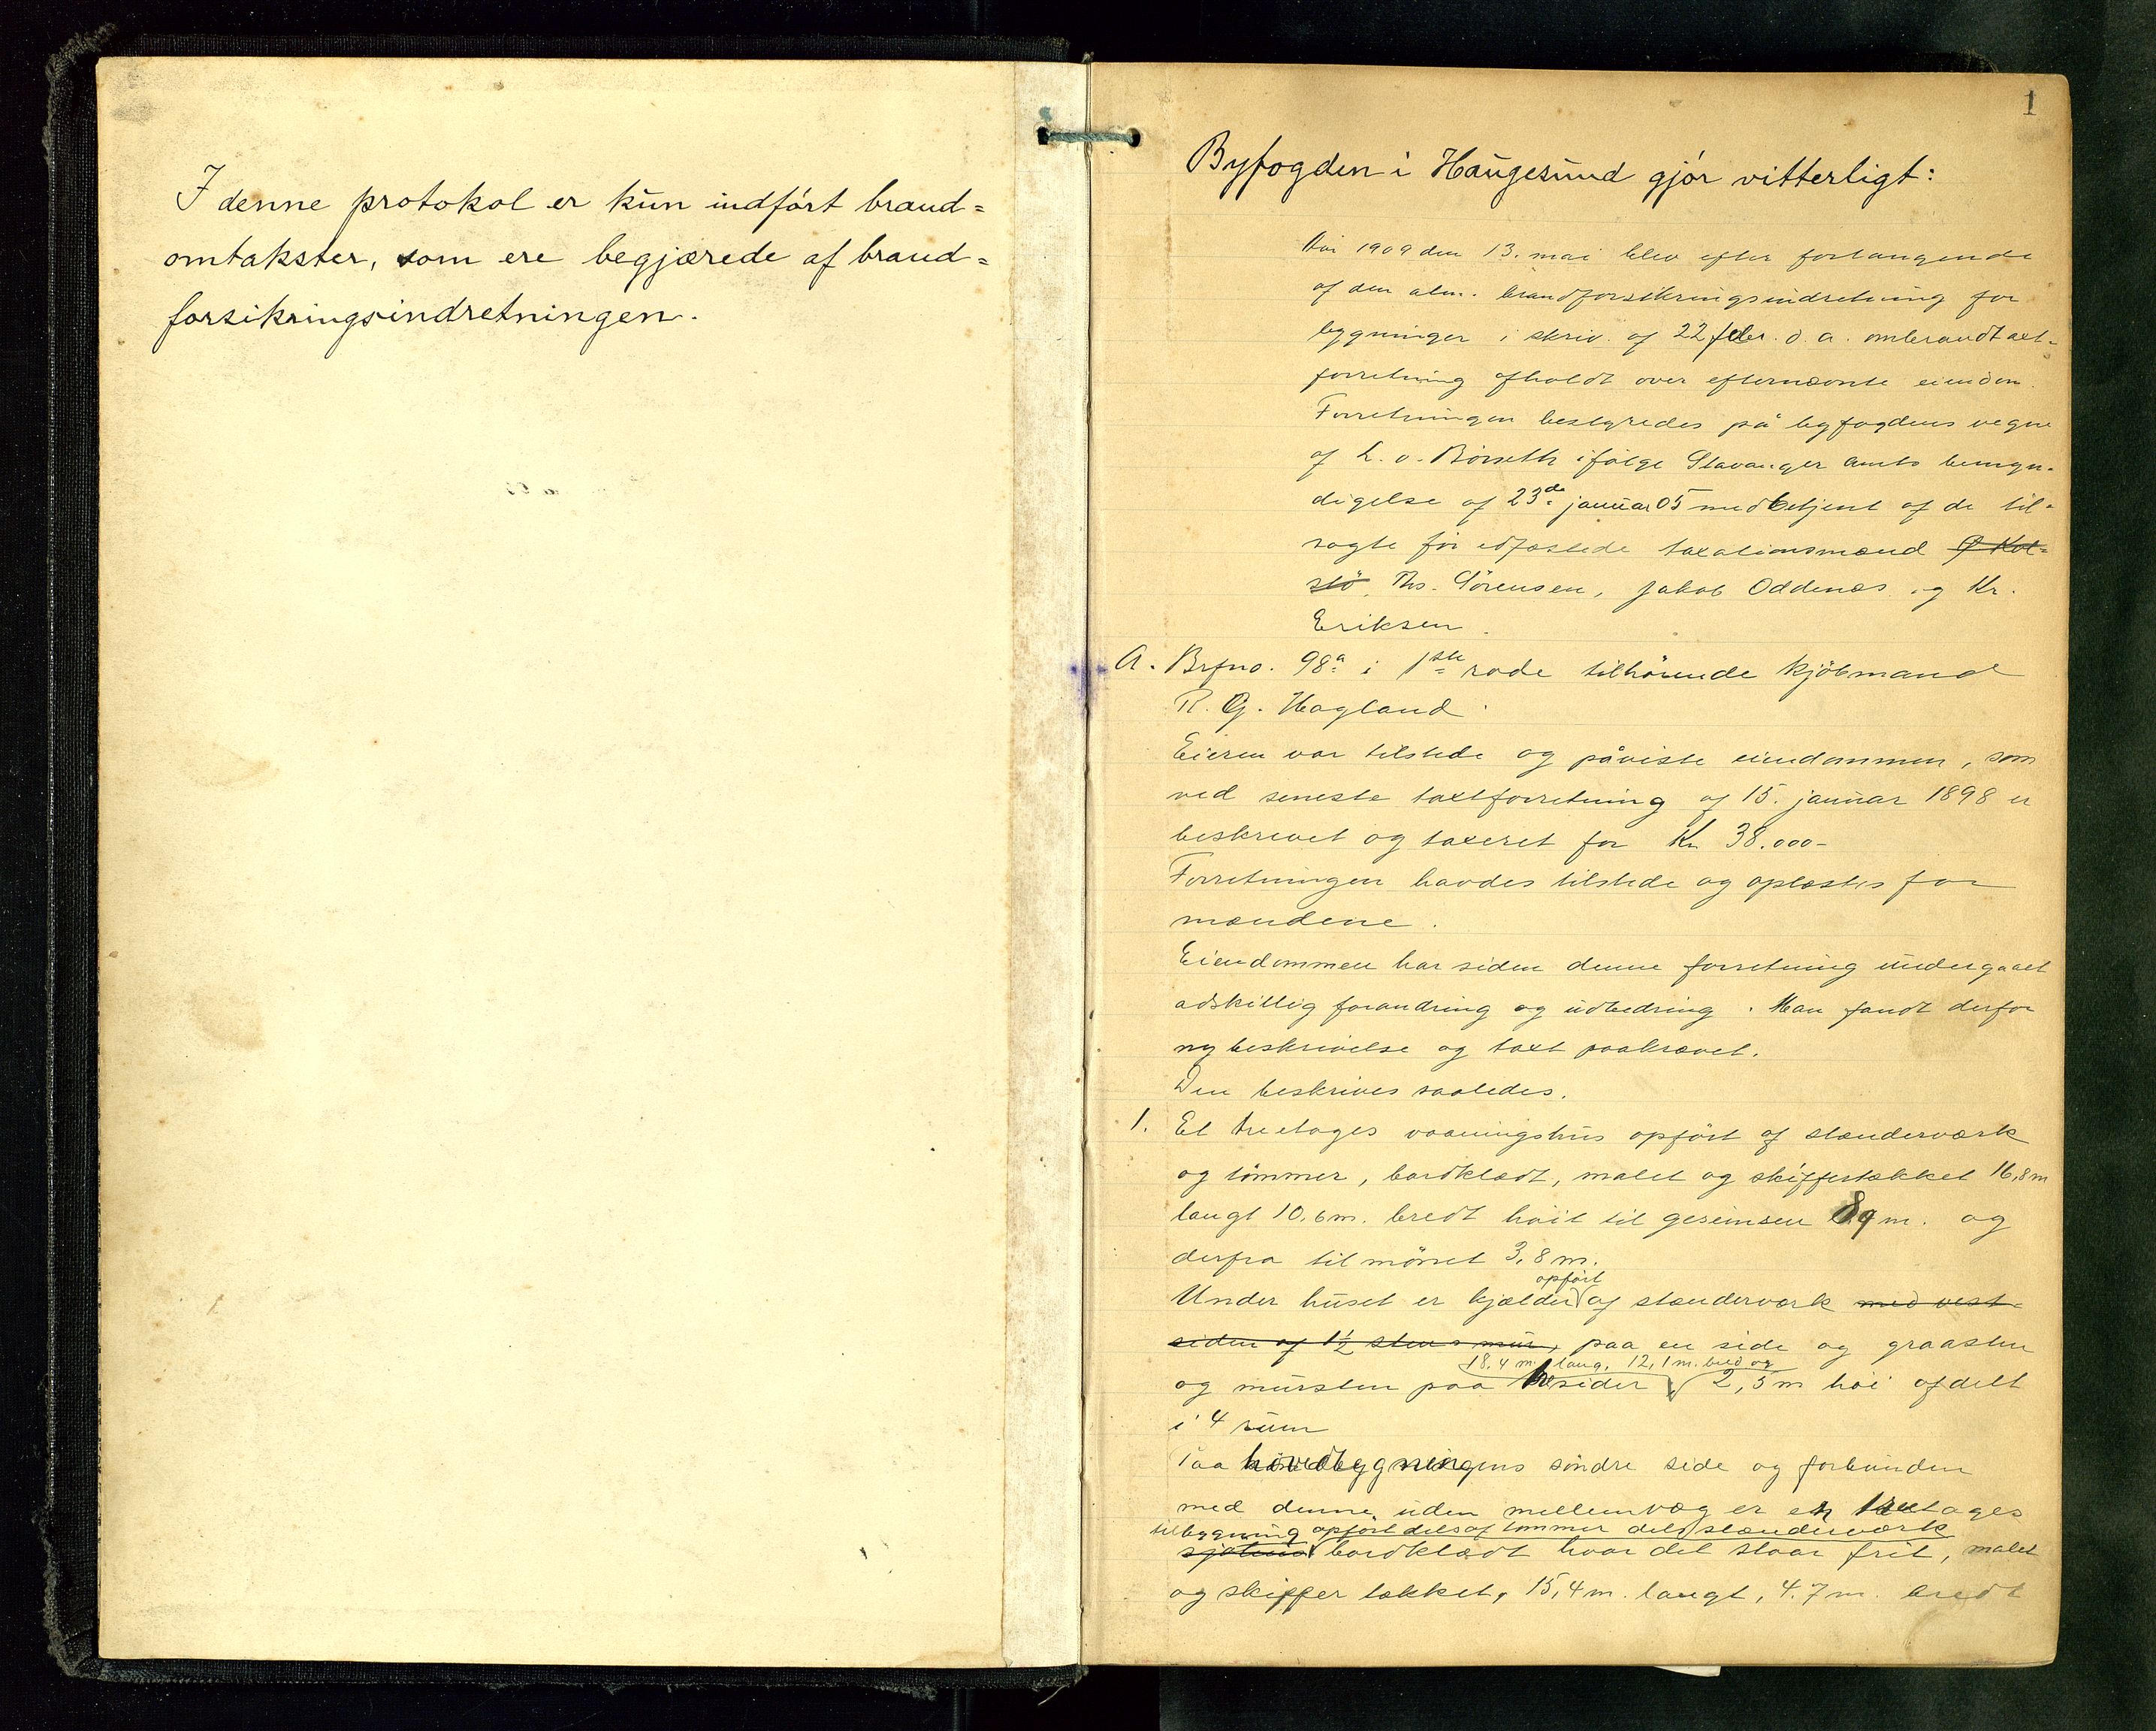 I denne protokol er kun indført brand=
omtakster, som ere begjærede af brand=
forsikringsindretningen.
1
Byfogden i Haugesund gjør vitterligt:
Aar 1909 den 13. mai blev efter forlangende
af den alm. brandforsikringsindretning for
bygninger i skriv. af 22 febr. d. a. ombrandtaxt-
forretning afholdt over efternævnte eiendom.
Forretningen bestyredes på byfogdens vegne
af L. O. Børseth ifølge Stavanger amts bemyn-
digelse af 23de januar 05 med betjent af de til-
sagte før edfæstede taxationsmænd O Kol-
stø, Ths. Sørensen, Jakob Oddenæs og Kr.
Eriksen.
A. Brfno. 98a i 1ste rode tilhørende kjøbmand
R. G. Hagland.
Eieren var tilstede og påviste eiendommen, som
ved seneste taxtforretning af 15. januar 1898 er
beskrevet og taxeret for Kr 38.000-
Forretningen havdes tilstede og oplæstes for
mændene.
Eiendommen har siden denne forretning undergaaet
adskillig forandring og udbedring. Man fandt derfor
ny beskrivelse og taxt paakrævet.
Den beskrives saaledes.
1. Et treetages vaaningshus opført af stænderværk
og tømmer, bordklædt, malet og skiffertækket 16,8 m
langt 10,6 m. bredt høit til gesimsen 8,9 m. og
derfra til mønet 3,8 m.
opført
Under huset er kjælder af stænderværk med vest-
siden af 1½ stens mur, paa en side og graasten
18,4 m. lang, 12,1 m. bred og
og mursten paa tre sider 2,5 m høi afdelt
i 4 rum
Paa hovedbygningens søndre side og forbunden
med denne uden mellemvæg er en treetages
tilbygning opført dels af tømmer dels stænderværk
sjøhus bordklædt hvor det staar frit, malet
og skiffertækket, 15,4 m. langt, 4.7 m. bredt